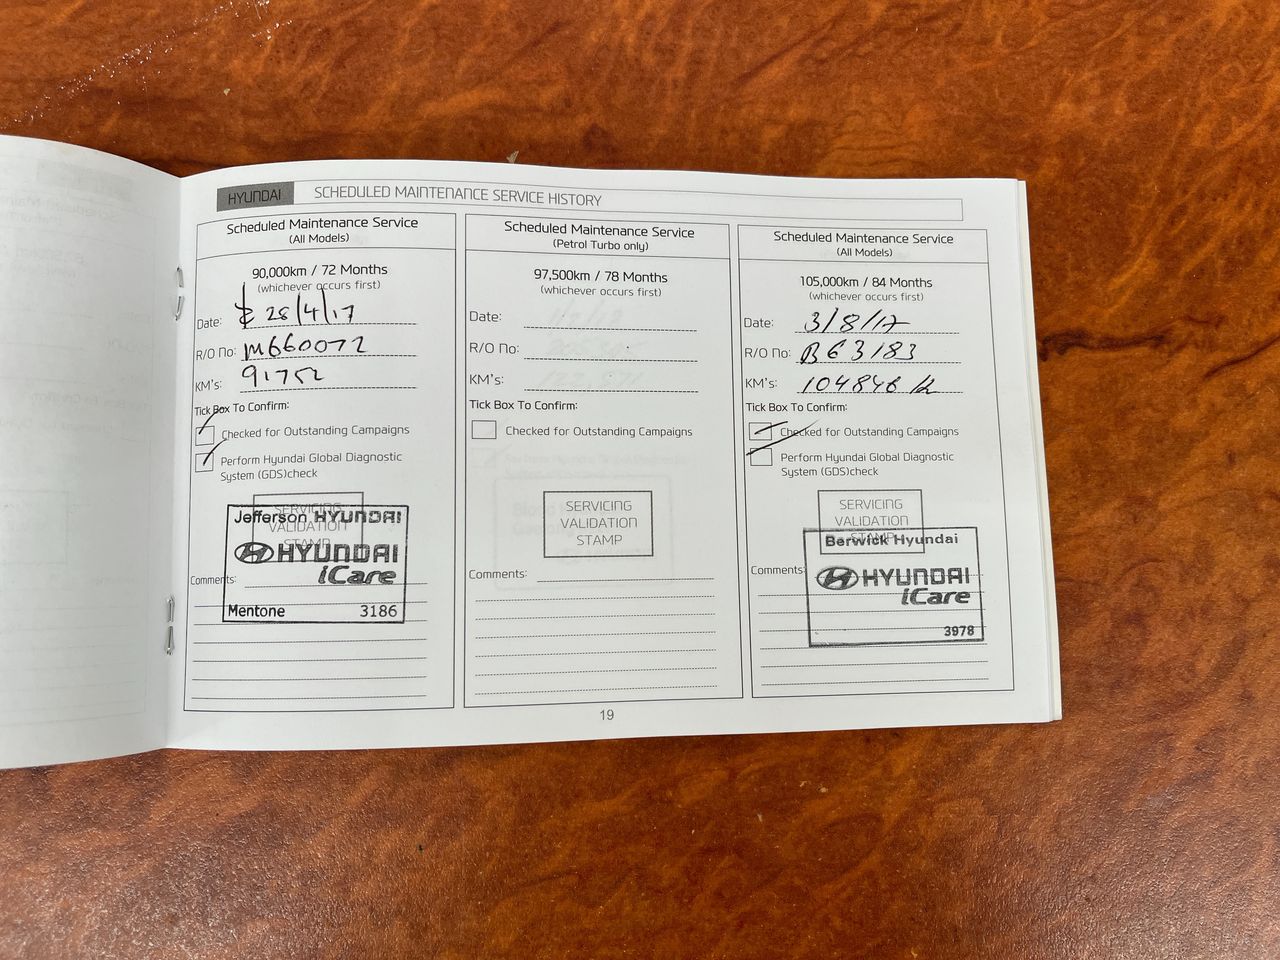 HYUNDAI SCHEDULED MAINTENANCE SERVICE HISTORY
Scheduled Maintenance Service
(All Models)
90,000km / 72 Months
(whichever occurs first)
Date: 28/4/17
R/O No: M660072
KM's: 91752
Tick Box To Confirm:
Checked for Outstanding Campaigns
Perform Hyundai Global Diagnostic
System (GDS)check
SERVICING
VALIDATION
STAMP
Jefferson HYUNDAI
HYUNDAI
iCare
Mentone 3186
Comments:
Scheduled Maintenance Service
(Petrol Turbo only)
97,500km / 78 Months
(whichever occurs first)
Date:
R/O No:
KM's:
Tick Box To Confirm:
Checked for Outstanding Campaigns
SERVICING
VALIDATION
STAMP
Comments:
Scheduled Maintenance Service
(All Models)
105,000km / 84 Months
(whichever occurs first)
Date: 3/8/17
R/O No: B63183
KM's: 104846
Tick Box To Confirm:
Checked for Outstanding Campaigns
Perform Hyundai Global Diagnostic
System (GDS)check
SERVICING
VALIDATION
STAMP
Berwick Hyundai
HYUNDAI
iCare
3978
Comments:
19